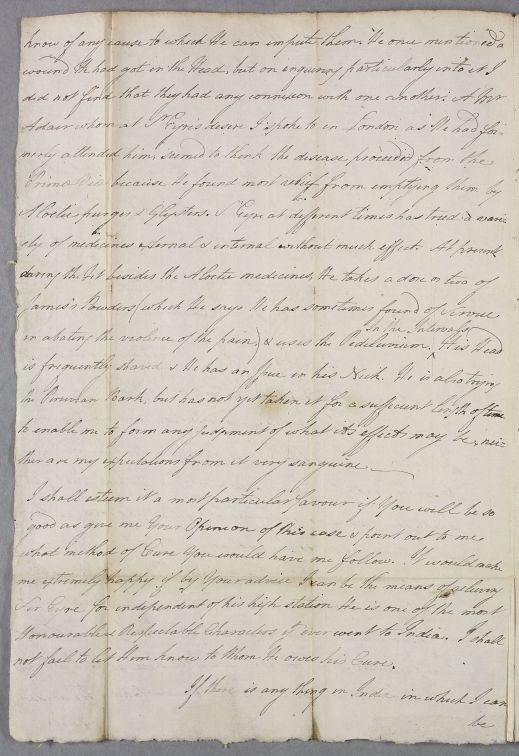 know of any cause to which He can impute them. He once mentioned a
wound He had got in the Head, but on enquiring particularly into it I
did not find that they had any connexion with one another. A Mr
Adair whom at Sr Eyre's desire I spoke to in London as He had for-
merly attended him, seemed to think the disease proceeded from the
Primæ Viæ because He found most relief from emptying them by
Aloetic purges & Glysters. Sr Eyre at different times has tried a vari-
ety of medicines external & internal without much effect. At present
during the fit besides the Aloetic medicines, He takes a dose or two of
James's Powders (which He says He has sometimes found of service
In the Intervals
in abating the violence of the pain) & uses the Pediluvium. ^ His Head
is frequently shaved & He has an Issue in his Neck. He is also trying
the Peruvian Bark, but has not yet taken it for a sufficient length of time
to enable me to form any judgment of what its effects may be, nei-
ther are my expectations from it very sanguine.
I shall esteem it a most particular favour if You will be so
good as give me Your Opinion of this case & point out to me
what method of Cure You would have me follow. It would make
me extremely happy if by Your advice I can be the means of relieving
Sir Eyre for independent of his high station He is one of the most
Honourable & Respectable Characters if ever went to India. I shall
not fail to let Him know to Whom He owes his Cure.
If there is any thing in India in which I can
be